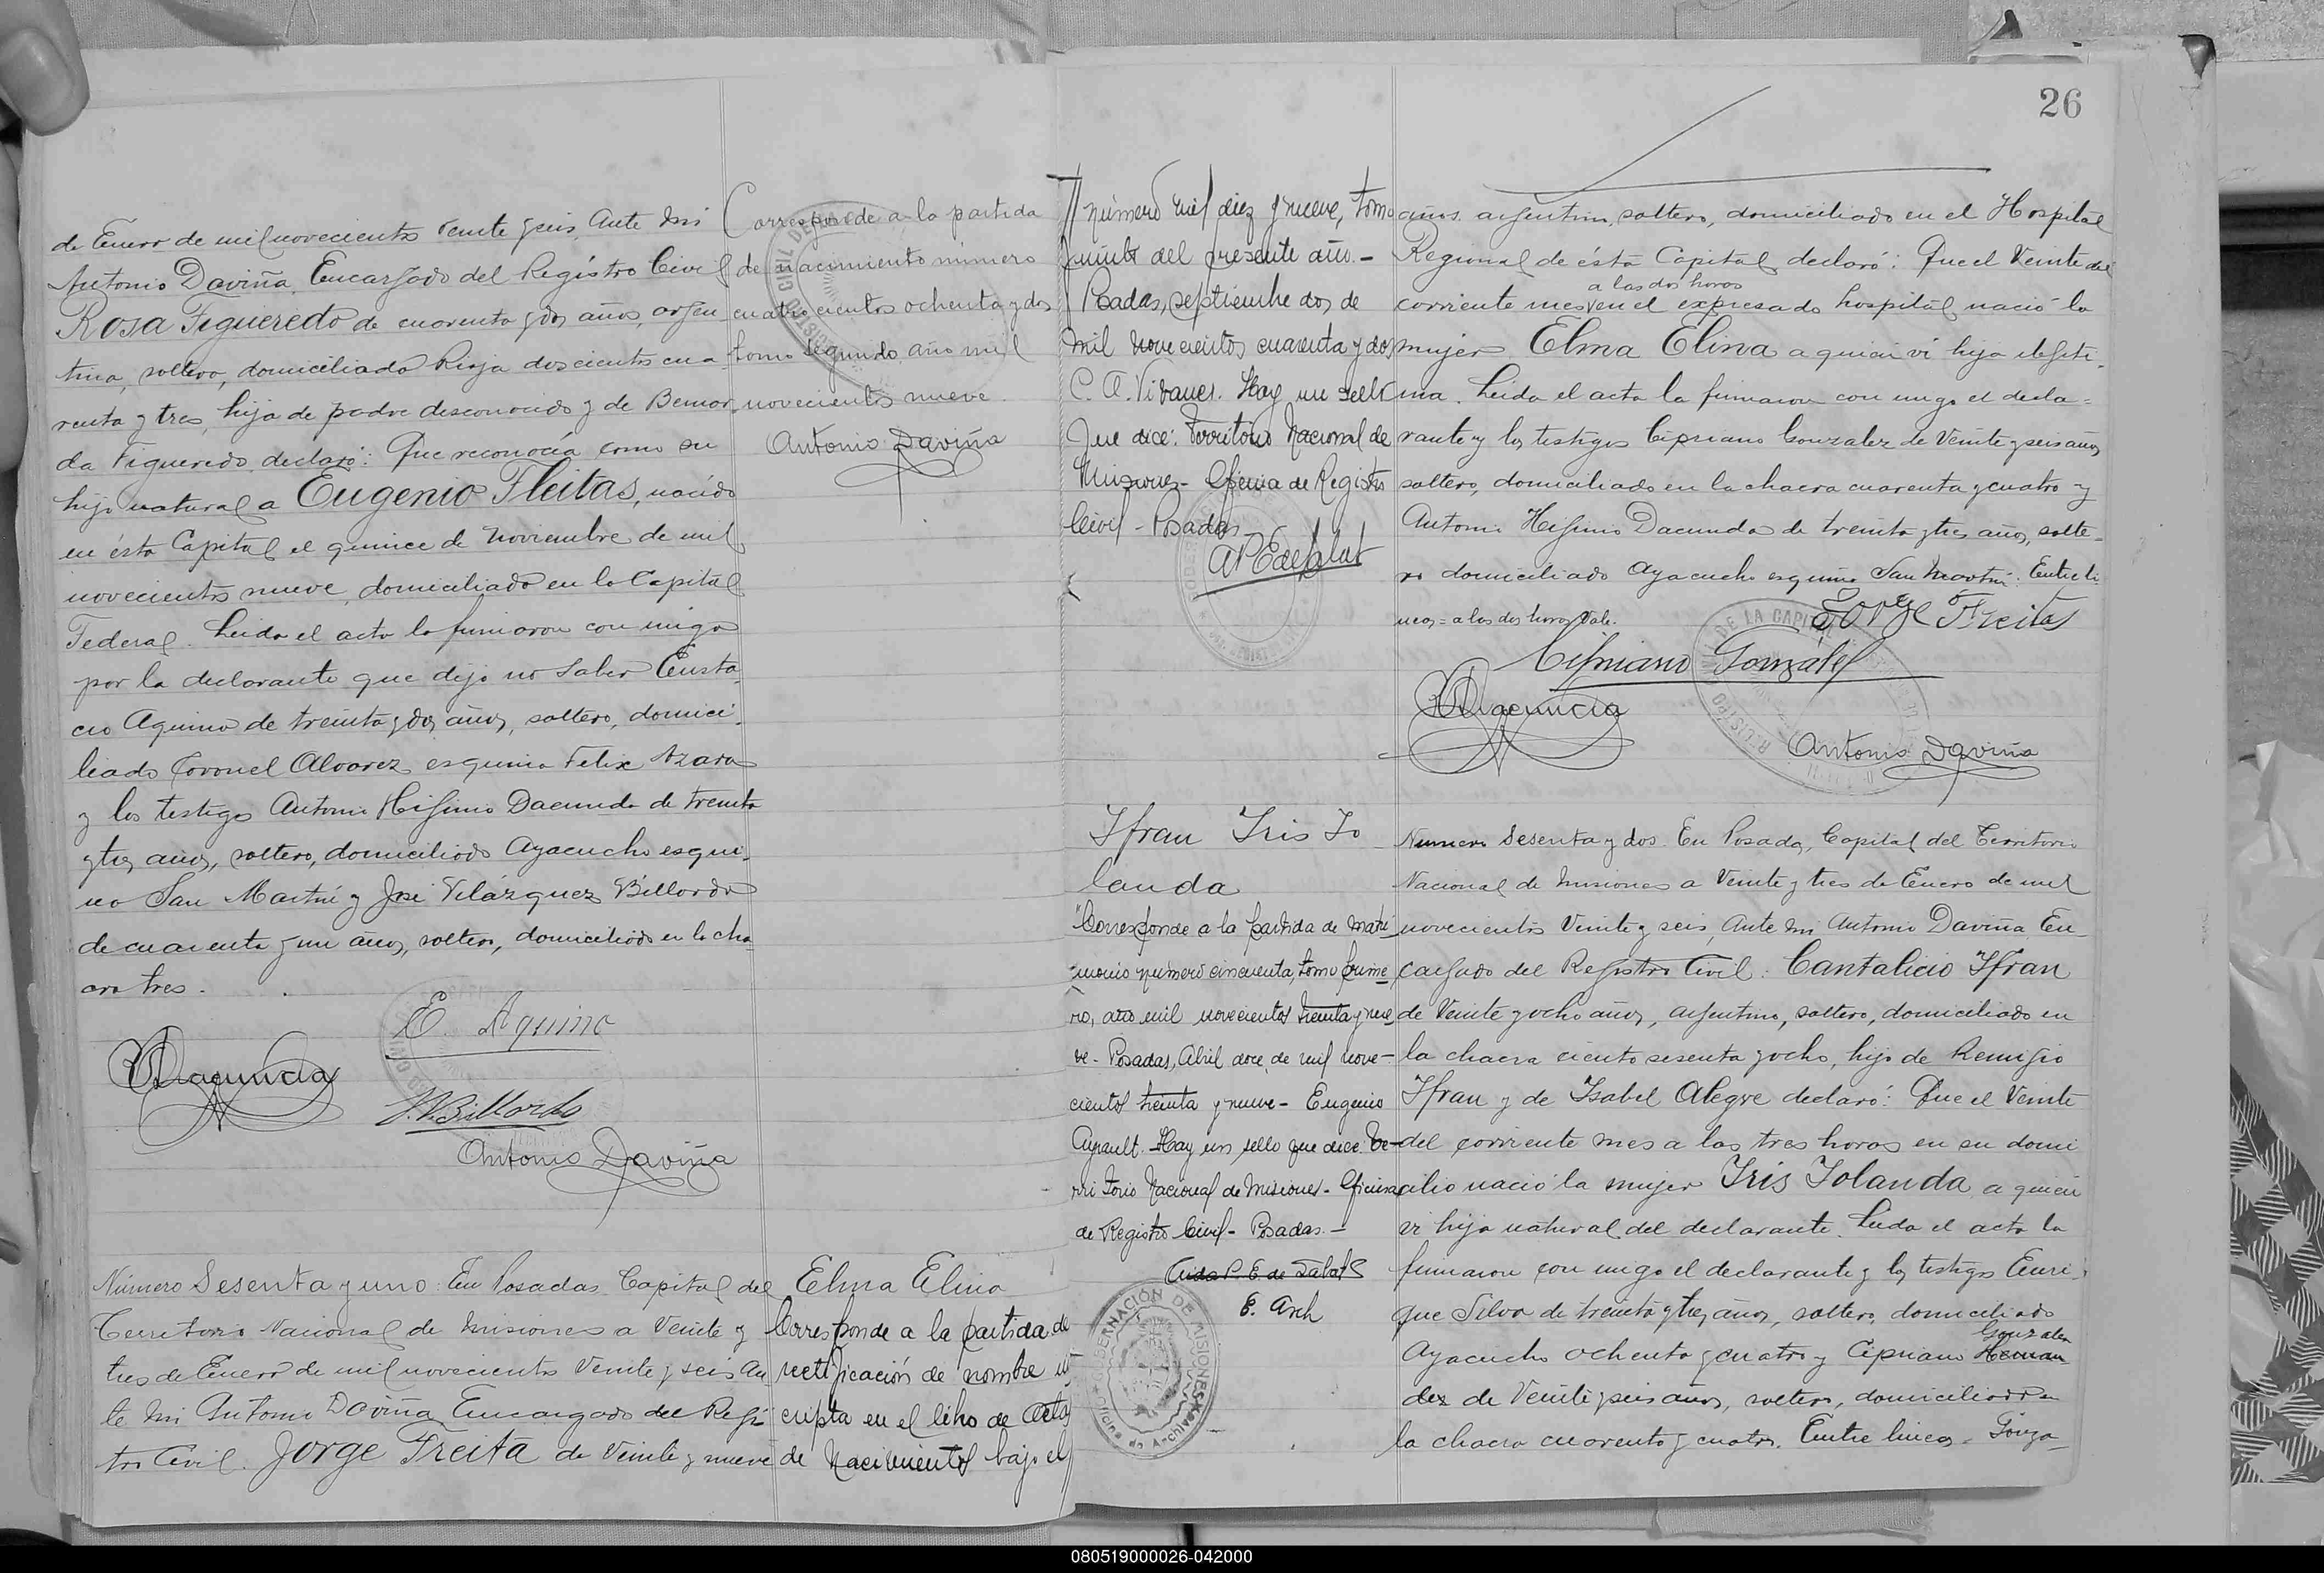 de Enero de mil novecientos veinte y seis, Ante mi
Antonio Daviña, Encargado del Registro Civil
Rosa Figueredo de cuarenta y dos años, argen
tina, soltera, domiciliada Rioja doscientos cua
renta y tres, hija de padre desconocido y de Bernar
da Figueredo, declaró: Que reconocía como su
hijo natural a Eugenio Fleitas, nacido
en ésta Capital el quince de Noviembre de mil
novecientos nueve, domiciliado en la Capital
Federal. Leida el acta la firmaron con migo
por la declarante que dijo no saber Eusta
cio Aquino de treinta y dos años, soltero, domici
liado Coronel Alvarez esquina Felix Azara
y los testigos Antonio Higinio Dacunda de treinta
y tres años, soltero, domiciliado Ayacucho esqui
na San Martín y José Velázquez Billordo
de cuarenta y un años, soltero, domiciliado en la cha
cra tres.
E. Aquino
Dacunda
J. V. Billordo
Antonio Daviña
Corresponde a la partida
de nacimiento número
cuatrocientos ochenta y dos
tomo segundo año mil
novecientos nueve.
Antonio Daviña
Número Sesenta y uno: En Posadas, Capital del
Territorio Nacional de Misiones a Veinte y
tres de Enero de mil novecientos Veinte y seis, An
te mi Antonio Daviña Encargado del Regis
tro Civil. Jorge Freita de Veinte y nueve
Elma Elina
Corresponde a la partida de
rectificación de nombre ins
cripta en el libro de Actas
de Nacimientos bajo el
26
número mil diez y nueve, tomo
quinto del presente año.-
Posadas, septiembre dos de
mil novecientos cuarenta y dos
C. A. Vivanes. Hay un sello
que dice: Territorio Nacional de
Misiones- Oficina de Registro
Civil - Posadas
años, argentino, soltero, domiciliado en el Hospital
Regional de ésta Capital, declaró: Que el Veinte del
a las dos horas
corriente mes en el expresado hospital nació la
mujer Elma Elina a quien vi hija ilegíti
ma. Leida el acta la firmaron con migo el decla=
rante y los testigos Cipriano Gonzalez de Veinte y seis años
soltero, domiciliado en la chacra cuarenta y cuatro y
Antonio Higinio Dacunda de treinta y tres años, solte=
ro domiciliado Ayacucho esquina San Martín. Entre lí
neas = a las dos horas Vale.
Jorge Freitas
Cipriano Gonzalez
Dacunda
Antonio Daviña
Ifran Iris Yo
landa
"Corresponde a la partida de matri
monio número cincuenta, tomo prime
ro, año mil novecientos treinta y nue
ve - Posadas, Abril doce, de mil nove-
cientos treinta y nueve - Eugenio
Ayrault. Hay un sello que dice: Te-
rritorio Nacional de Misiones - Oficina
de Registro Civil - Posadas.-
Aida P. E. de Sabat
E. Arch
GOBERNACIÓN DE MISIONES
Oficina de Archivo
Numero Sesenta y dos. En Posadas, Capital del Territorio
Nacional de Misiones a Veinte y tres de Enero de mil
novecientos Veinte y seis, Ante mi Antonio Daviña, En
cargado del Registro Civil: Cantalicio Ifran
de Veinte y ocho años, argentino, soltero, domiciliado en
la chacra ciento sesenta y ocho, hijo de Remigio
Ifran y de Isabel Alegre declaró: Que el Veinte
del corriente mes a las tres horas en su domi
cilio nació la mujer Iris Iolanda, a quien
vi hija natural del declarante. Leida el acta la
firmaron con migo el declarante y los testigos Enri
que Silva de treinta y tres años, soltero, domiciliado
Gonzalez
Ayacucho ochenta y cuatro y Cipriano Hernan
dez de Veinte y seis años, soltero, domiciliado en
la chacra cuarenta y cuatro. Entre lineas = Gonza
080519000026-042000